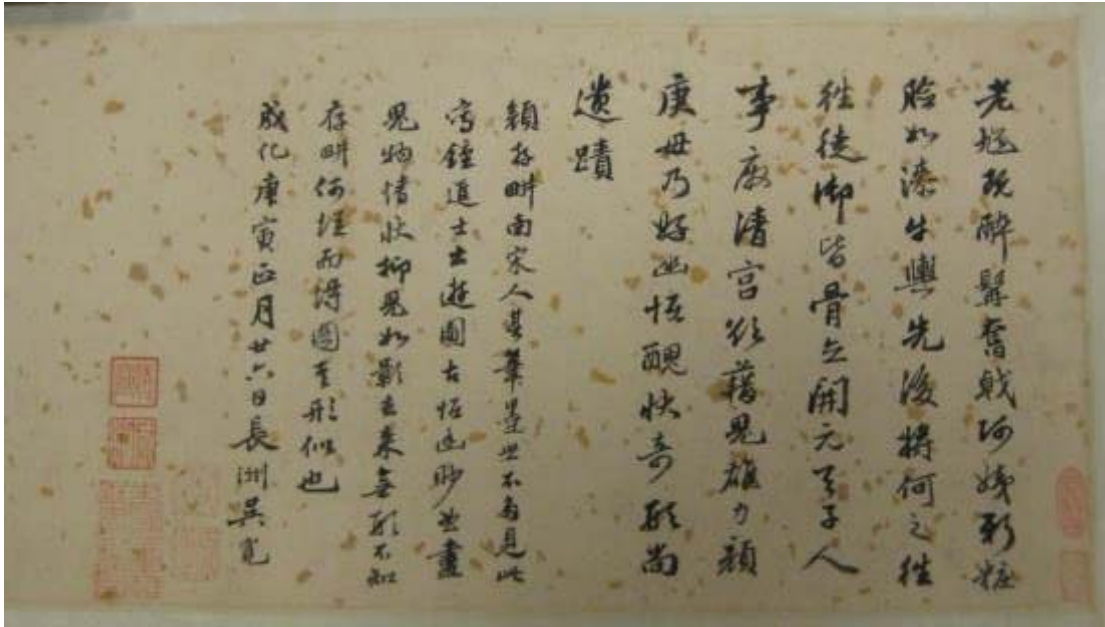 老馗既醉髯奮戟阿姨新妝
臉如漆牛輿先後將何之徃
徃徒御皆骨立開元天子人
事廢清宮欲藉鬼雄力顏
庚毋乃好幽怪醜狀奇形尚
遺蹟
顏 南宋人其筆墨世不多見此
寫鍾進士出遊圖古怪幽眇
鬼物情狀抑鬼如影去來無形不知
何從而得圖其形似也
成化庚寅正月廿六日長洲吳寬